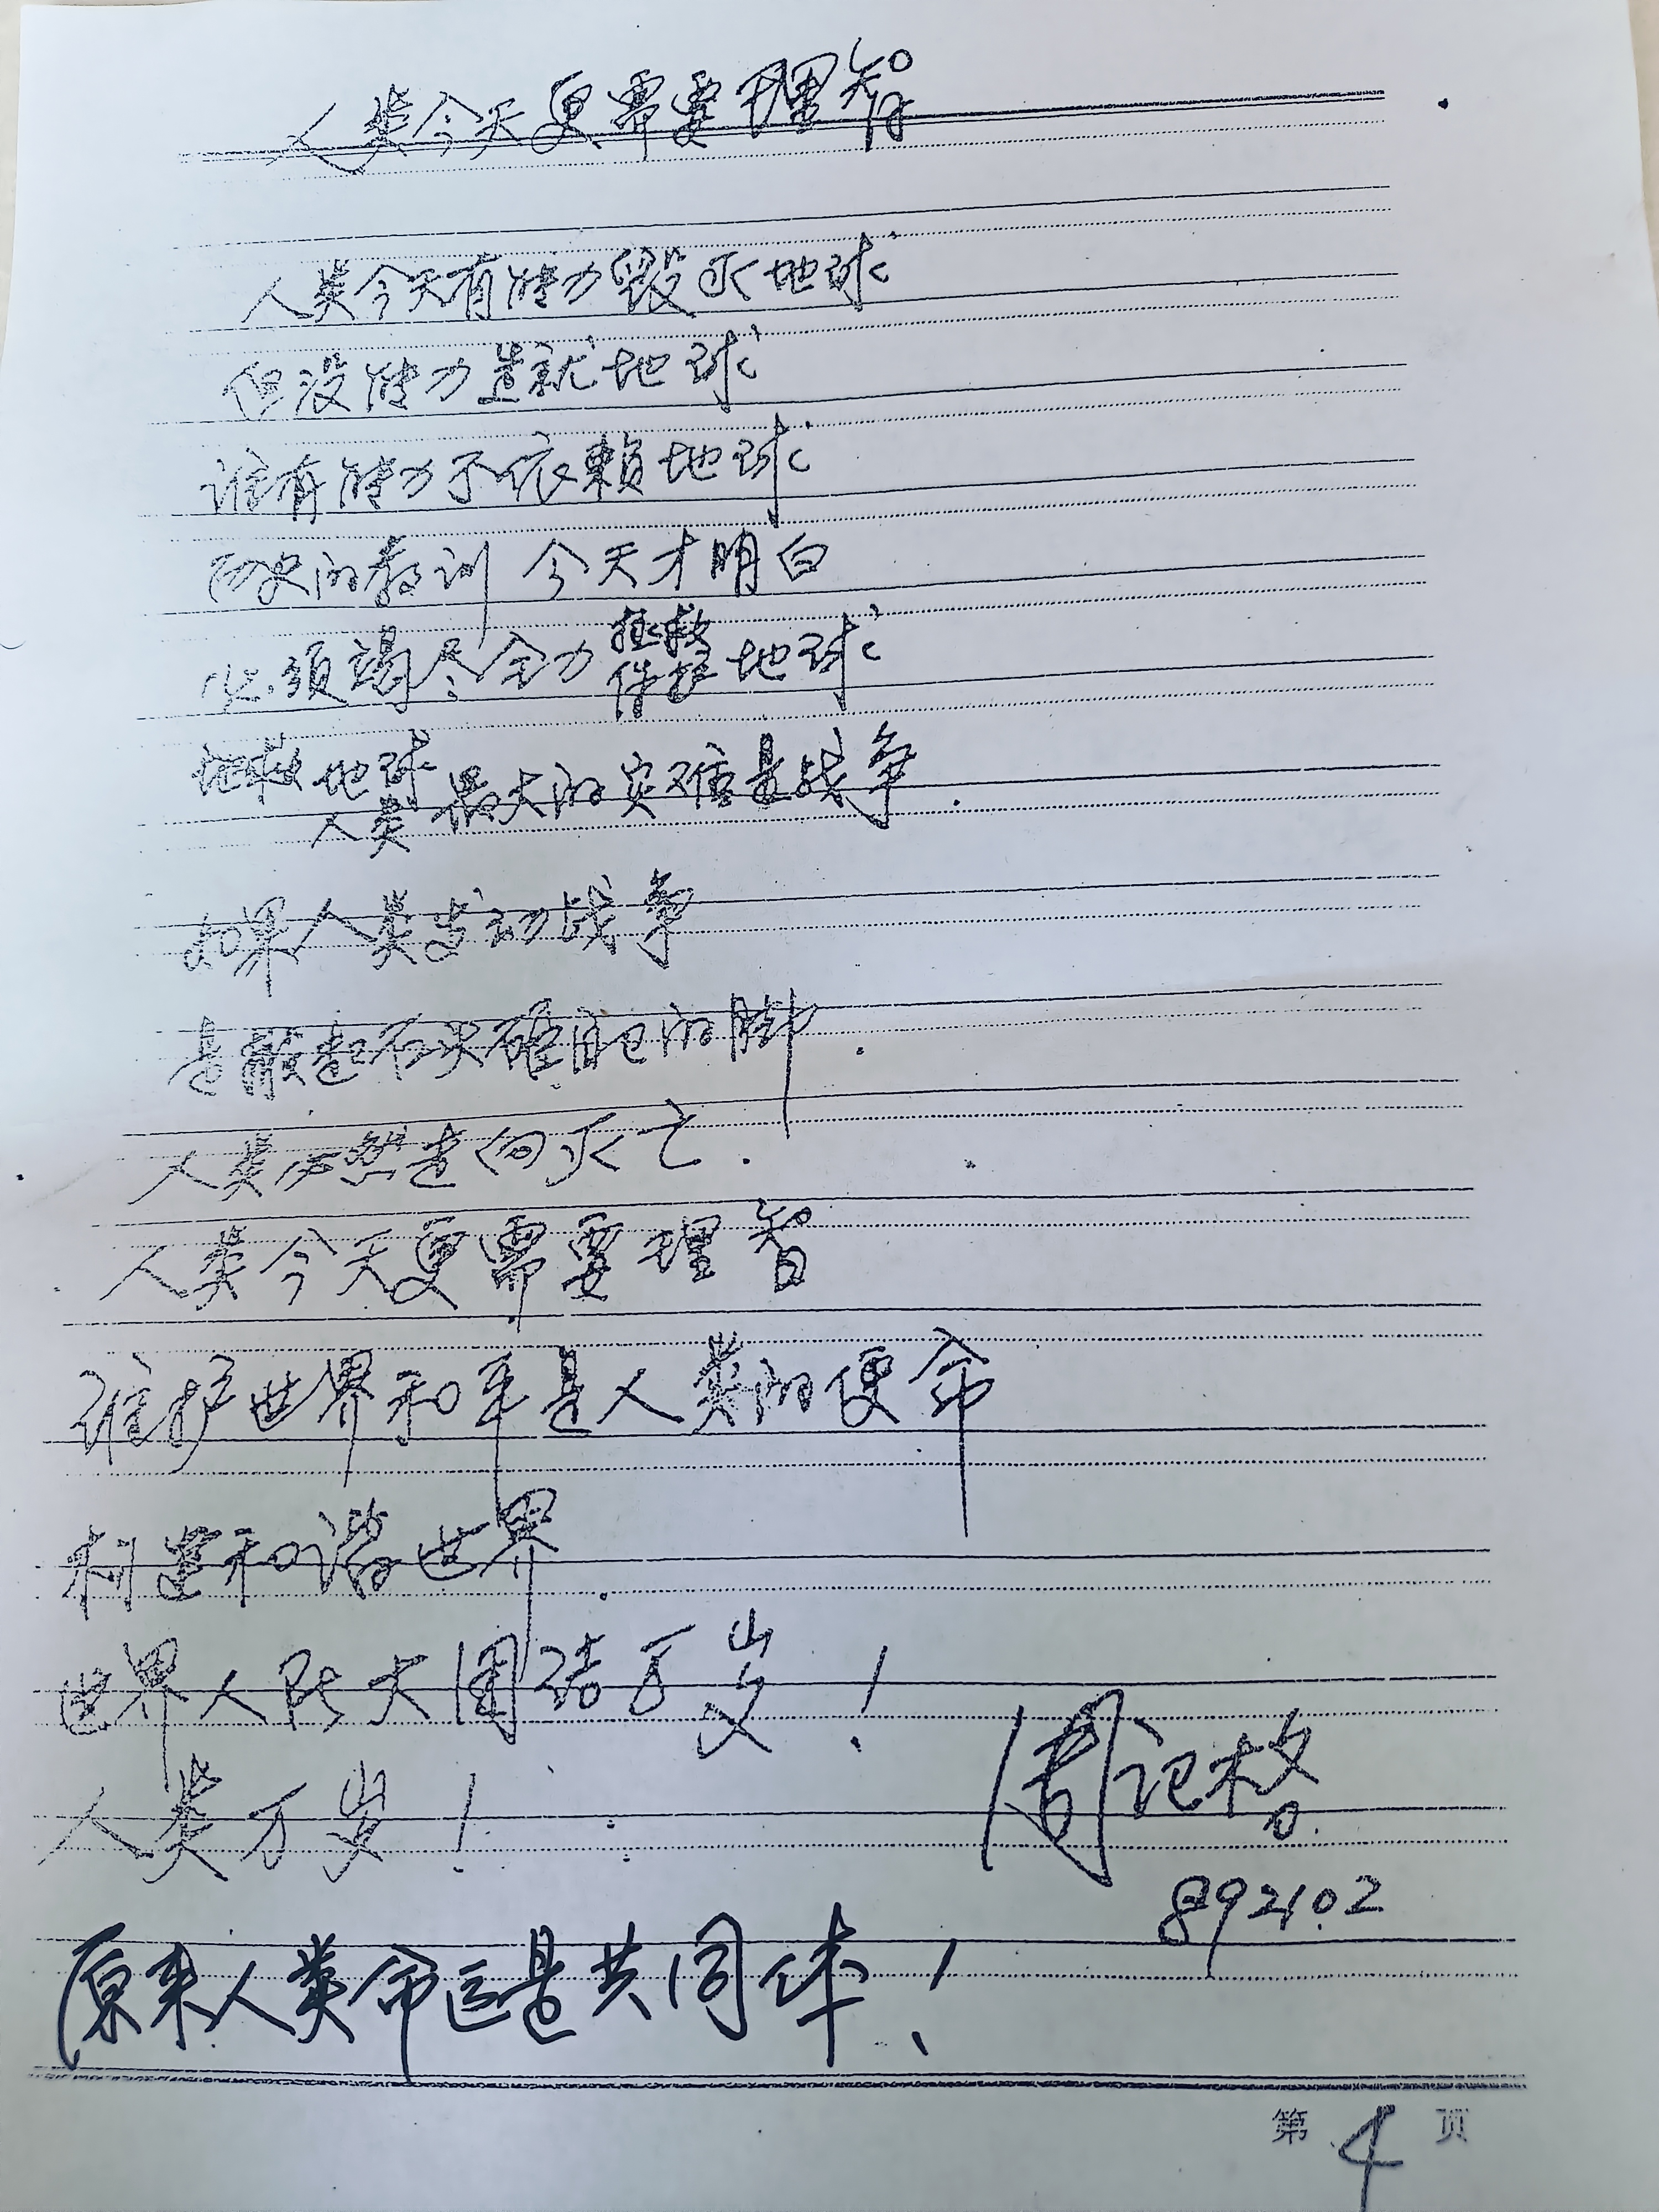 人类今天更需要理智
人类今天有能力毁灭地球
但没能力造就地球
谁有能力不依赖地球
历史的教训 今天才明白
必须竭尽全力拯救保护地球
拯救地球人类最大的灾难是战争.
如果人类发动战争
是搬起石头砸自己的脚.
人类必然走向灭亡.
人类今天更需要理智
维护世界和平是人类的使命
构建和谐世界.
世界人民大团结万岁!
人类万岁!
周记格
892102
原来人类命运是共同体!
第 4 页